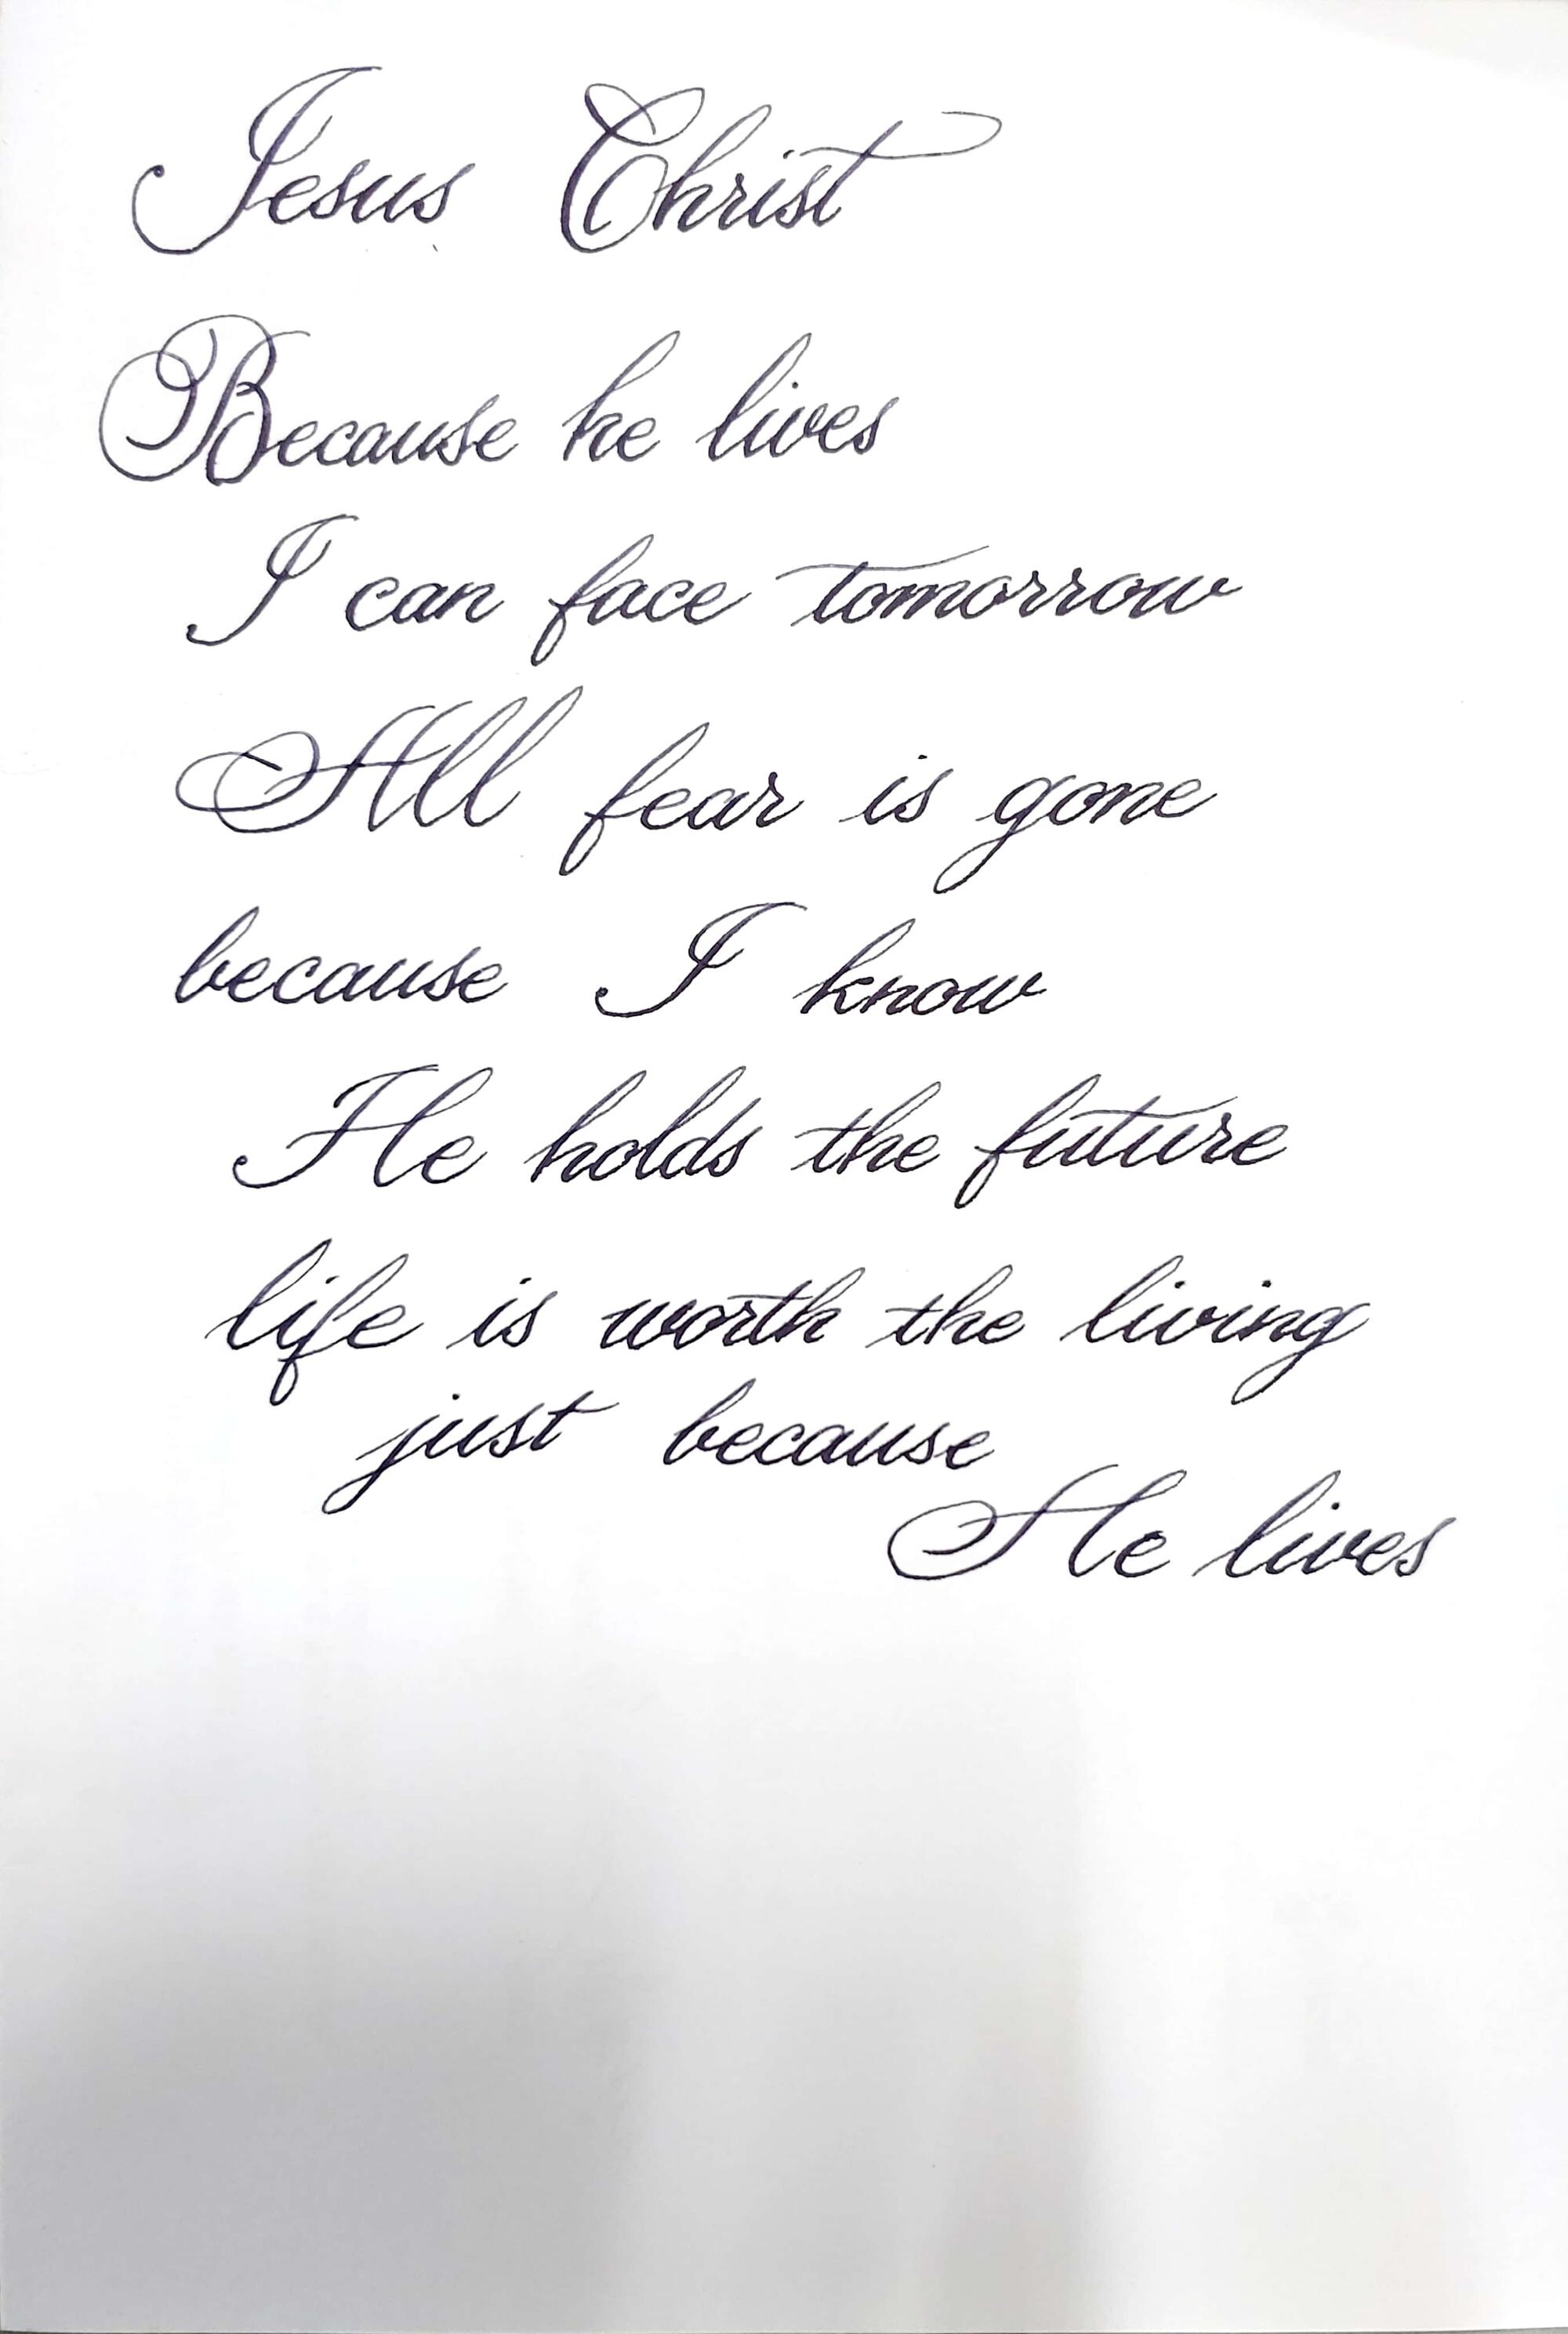 Jesus Christ
Because he lives
I can face tomorrow
All fear is gone
because I know
He holds the future
life is worth the living
just because
He lives